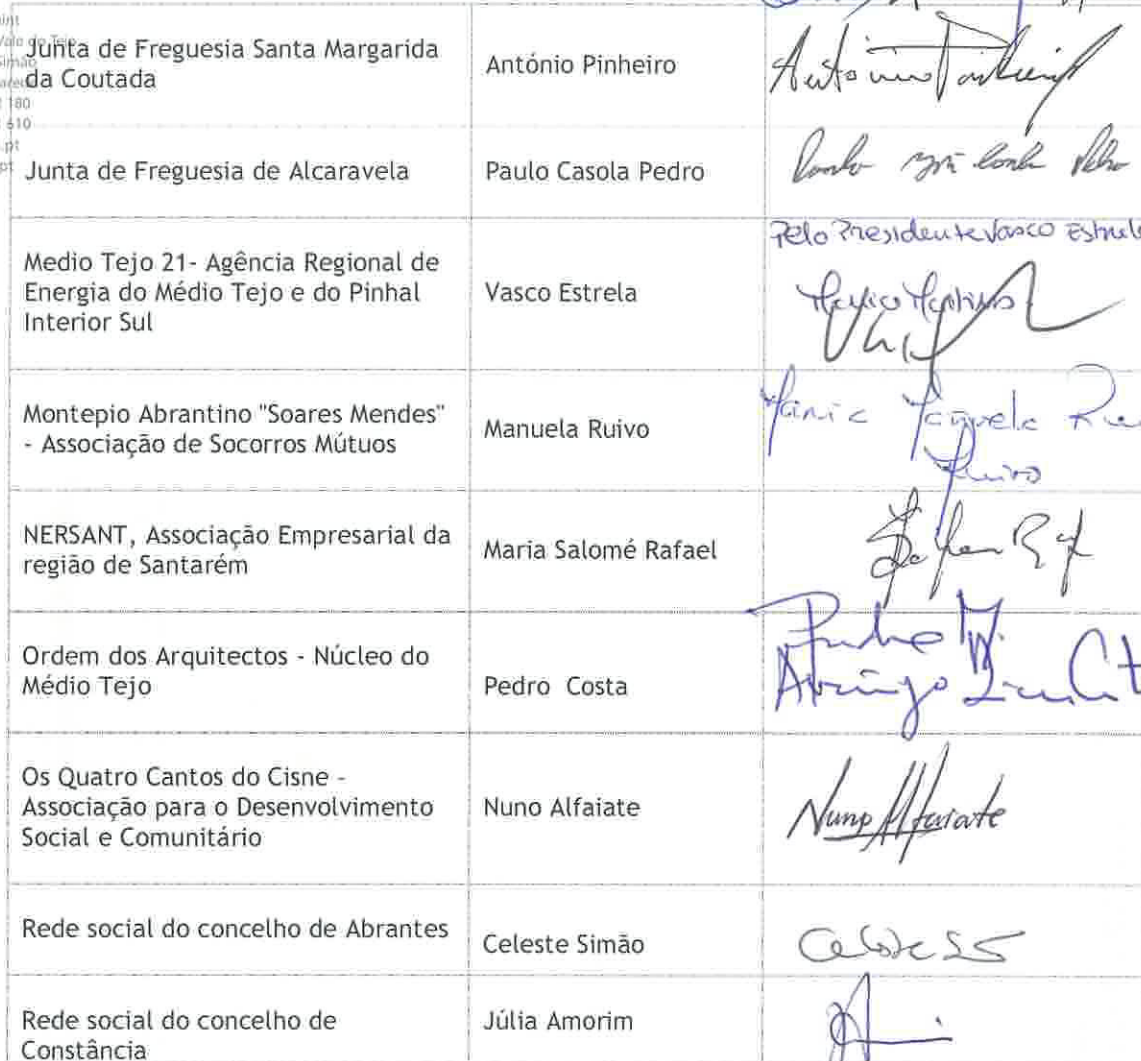 Junta de Freguesia Santa Margarida
da Coutada
António Pinheiro
180
610
.pt
Junta de Freguesia de Alcaravela
Paulo Casola Pedro
Medio Tejo 21- Agência Regional de
Energia do Médio Tejo e do Pinhal
Interior Sul
Vasco Estrela
Pelo Presidente Vasco Estrela
Montepio Abrantino "Soares Mendes"
- Associação de Socorros Mútuos
Manuela Ruivo
Ruivo
NERSANT, Associação Empresarial da
região de Santarém
Maria Salomé Rafael
Ordem dos Arquitectos - Núcleo do
Médio Tejo
Pedro Costa
Os Quatro Cantos do Cisne -
Associação para o Desenvolvimento
Social e Comunitário
Nuno Alfaiate
Nuno Alfaiate
Rede social do concelho de Abrantes
Celeste Simão
Rede social do concelho de
Constância
Júlia Amorim